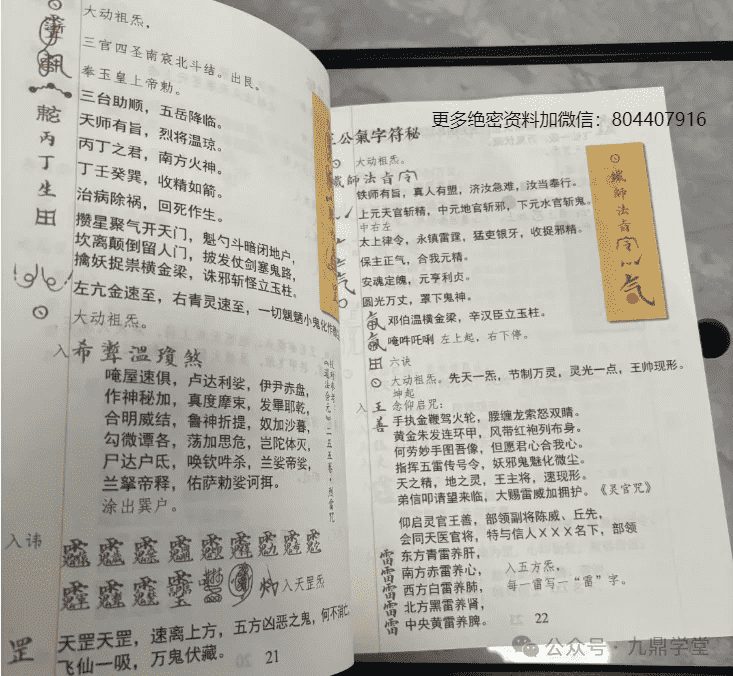 大动祖炁，
三官四圣南哀北斗结。出艮。
奉玉皇上帝勅。
三台助顺，五岳降临。
天师有旨，烈将温琼。
丙丁之君，南方火神。
丁壬癸巽，收精如箭。
治病除祸，回死作生。
攒星聚气开天门，魁勺斗暗闭地户，
坎离颠倒留人门，披发仗剑塞鬼路，
擒妖捉祟横金梁，诛邪斩怪立玉柱。
左亢金速至，右青灵速至，一切魍魉小鬼化作
大动祖炁。
丙
丁
生
入
温琼煞
唵屋速俱，卢达利娑，伊尹赤盘，
作神秘加，真度摩束，发畢耶乾，
合明威结，鲁神折提，奴加沙暮，
勾微谭各，荡加思危，岂陀体灭，
尸达户氐，唤钦吽杀，兰娑帝娑，
兰拏帝释，佑萨勅娑诃拝。
涂出巽户。
入讳
入天罡炁
罡
天罡天罡，速离上方，五方凶恶之鬼，何不消亡
飞仙一吸，万鬼伏藏。
21
更多绝密资料加微信：804407916
公氣字符秘
大动祖炁。
鐵師法旨
铁师有旨，真人有盟，济汝急难，汝当奉行。
上元天官斩精，中元地官斩邪，下元水官斩鬼。
中右左
太上律令，永镇雷霆，猛吏银牙，收捉邪精。
保主正气，合我元精。
安魂定魄，元亨利贞。
圆光万丈，罩下鬼神。
邓伯温横金梁，辛汉臣立玉柱。
唵吽吒唎 左上起，右下停。
六诀
大动祖炁。先天一炁，节制万灵，灵光一点，王帅现形。
坤起
入 王善 念仰启咒：
手执金鞭驾火轮，腰缠龙索怒双睛。
黄金朱发连环甲，风带红袍列布身。
何劳妙手图吾像，但愿君心合我心。
指挥五雷传号令，妖邪鬼魅化微尘。
天之精，地之灵，王主将，速现形。
弟信叩请望来临，大赐雷威加拥护。《灵官咒》
仰启灵官王善，部领副将陈威、丘先，
会同天医官将，特与信人XXX名下，部领
雷 东方青雷养肝，
雷 南方赤雷养心， 入五方炁，
雷 西方白雷养肺， 每一雷写一“雷”字。
雷 北方黑雷养肾，
雷 中央黄雷养脾。
22
鐵師法旨
气
公众号·九鼎学堂